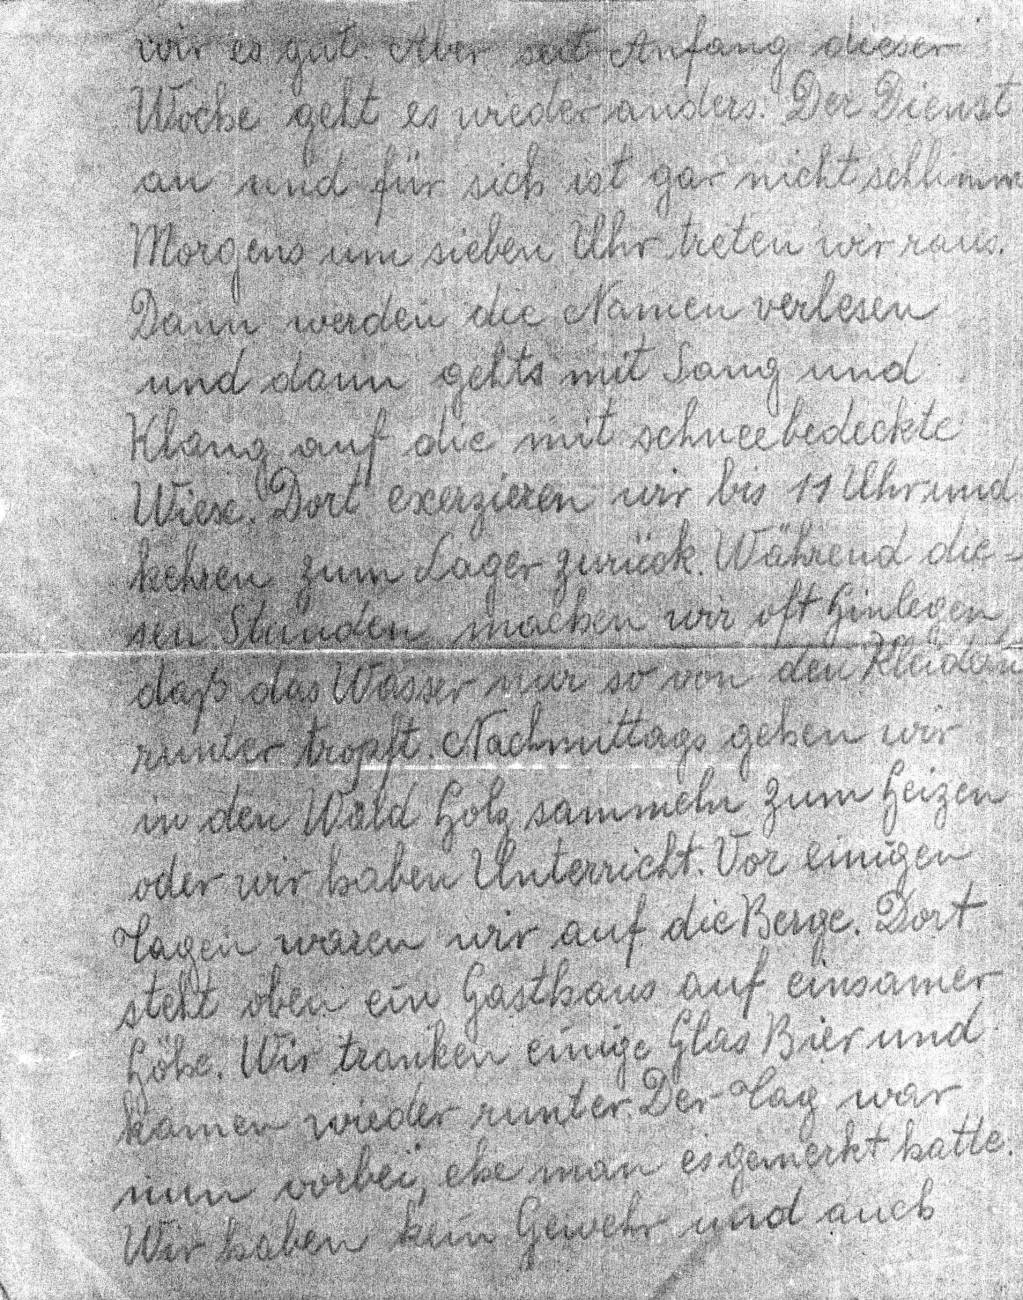 wir es gut. Aber seit Anfang dieser
Woche geht es wieder anders. Der Dienst
an und für sich ist gar nicht schlimm
Morgens um sieben Uhr treten wir raus.
Dann werden die Namen verlesen
und dann gehts mit Sang und
Klang auf die mit schneebedeckte
Wiese. Dort exerzieren wir bis 11 Uhr und
kehren zum Lager zurück. Während die-
sen Stunden machen wir oft Hinlegen,
daß das Wasser nur so von den Kleidern
runter tropft. Nachmittags gehen wir
in den Wald Holz sammeln zum Heizen
oder wir haben Unterricht. Vor einigen
Tagen waren wir auf die Berge. Dort
steht oben ein Gasthaus auf einsamer
Höhe. Wir tranken einige Glas Bier und
kamen wieder runter. Der Tag war
nun vorbei, ehe man es gemerkt hatte.
Wir haben kein Gewehr und auch